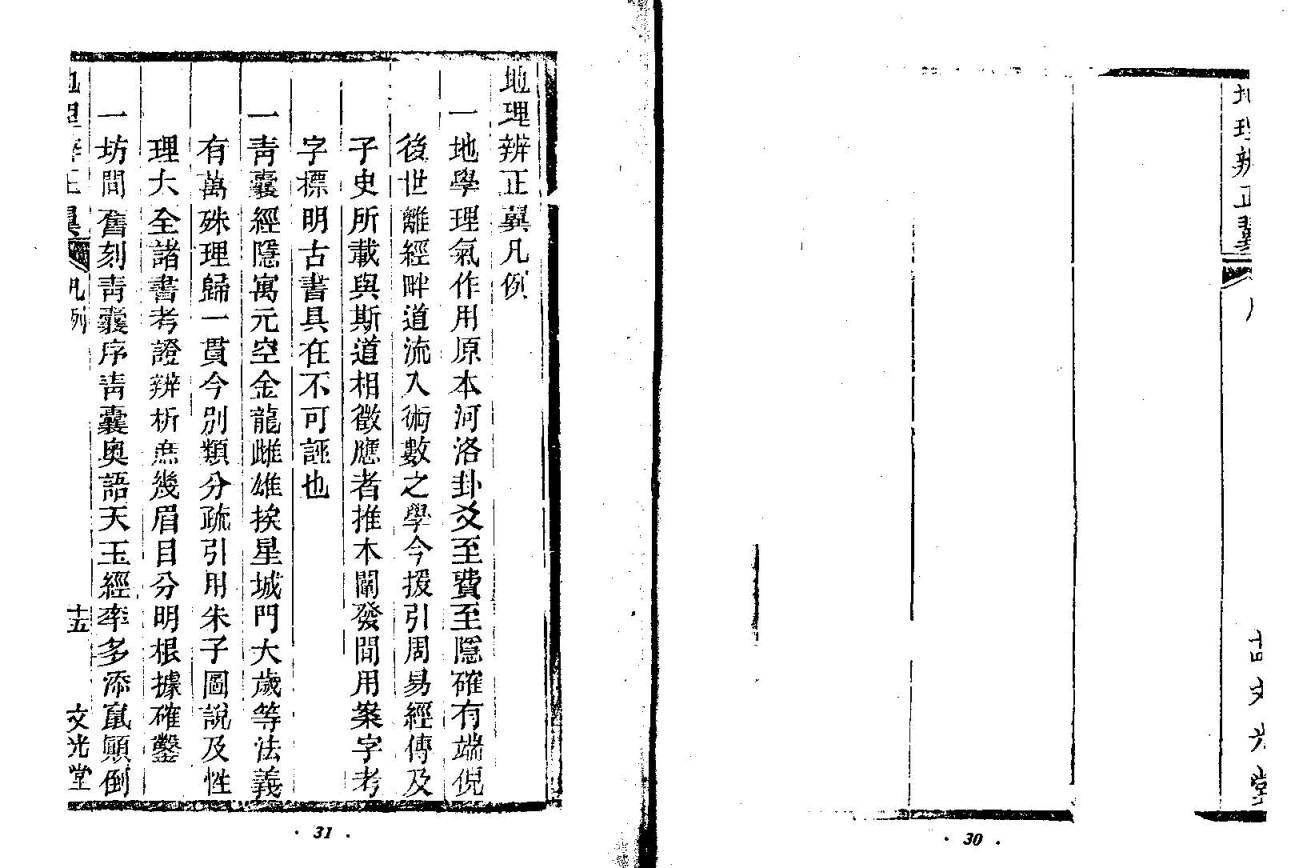 地理辨正翼
十四文光堂
30
地理辨正翼凡例
一地學理氣作用原本河洛卦爻至費至隱確有端倪
後世離經畔道流入術數之學今援引周易經傳及
子史所載與斯道相徵應者推本闡發間用案字考
字標明古書具在不可誣也
一靑囊經隱寓元空金龍雌雄挨星城門大歲等法義
有萬殊理歸一貫今別類分疏引用朱子圖說及性
理大全諸書考證辨析庶幾眉目分明根據確鑿
一坊間舊刻靑囊序靑囊奧語天玉經率多添竄顚倒
地理辨正翼 凡例 十五 文光堂
31